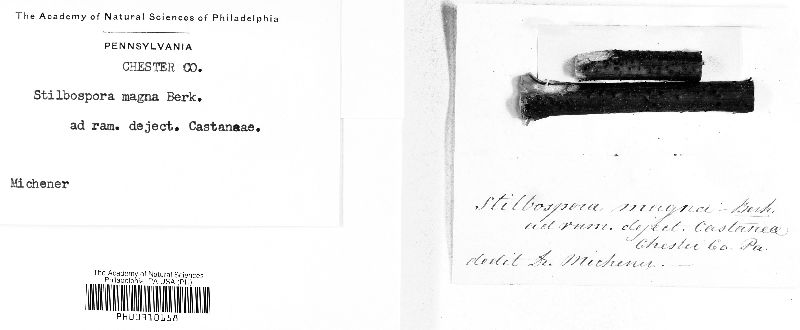 The Academy of Natural Sciences of Philadelphia
PENNSYLVANIA
CHESTER CO.
Stilbospora magna Berk.
ad ram. deject. Castaneae.
Michener
The Academy of Natural Sciences
Philadelphia, PA USA (PH)
Stilbospora magna - Berk.
ad ram. deject. Castaneae
Chester Co. Pa.
dedit Dr. Michener. -